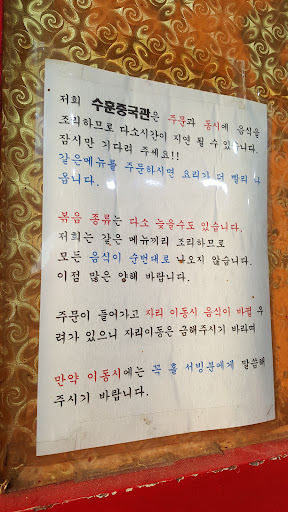 저희 수훈중국관은 주문과 동시에 음식을
조리하므로 다소시간이 지연 될 수 있습니다.
잠시만 기다려 주세요!!
같은메뉴를 주문하시면 요리가 더 빨리 나
옵니다.
볶음 종류는 다소 늦을수도 있습니다.
저희는 같은 메뉴끼리 조리하므로
모든 음식이 순번대로 나오지 않습니다.
이점 많은 양해 바랍니다.
주문이 들어가고 자리 이동시 음식이 바뀔 우
려가 있으니 자리이동은 금해주시기 바라며
만약 이동시에는 꼭 홀 서빙분에게 말씀해
주시기 바랍니다.